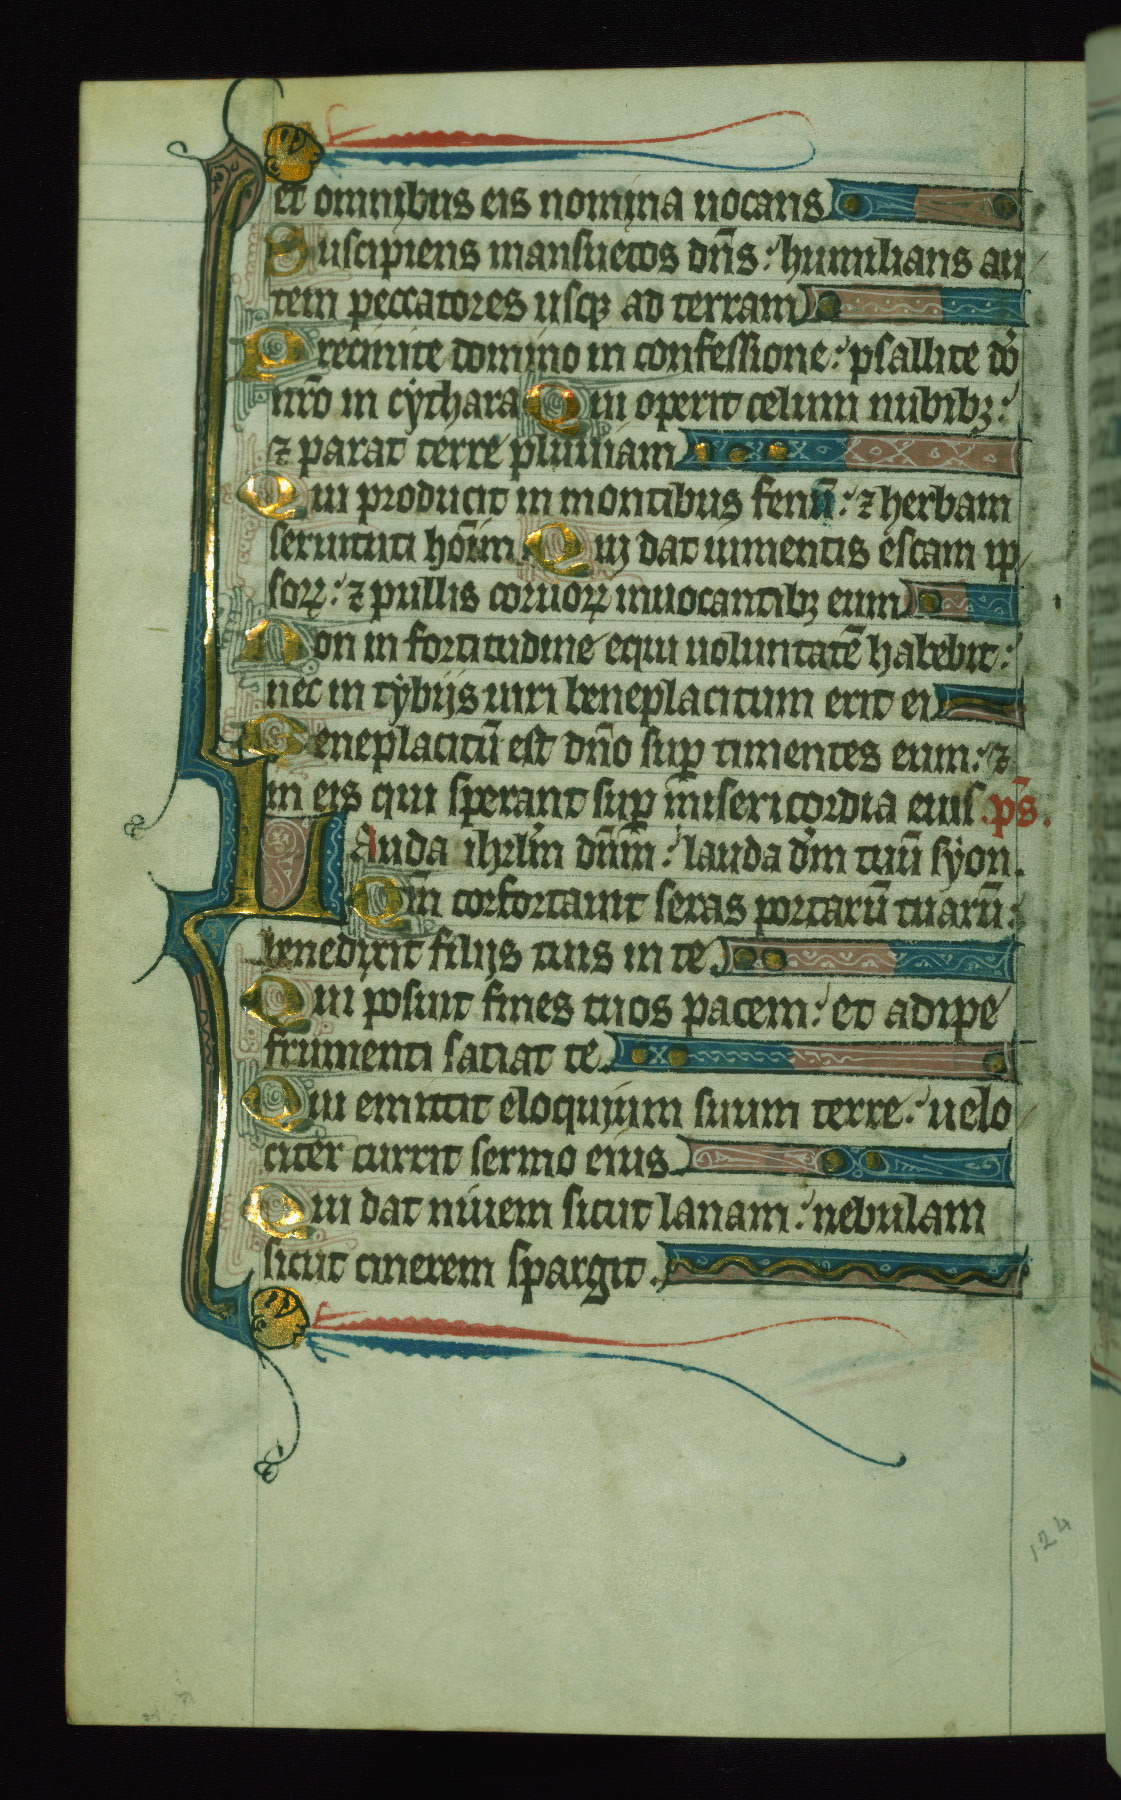 et omnibus eis nomina uocans
Suscipiens mansuetos dn̄s: humilians au
tem peccatores usqꝫ ad terram
Precinite domino in confessione: psallite dō
nr̄o in cythara Qui operit celum nubibꝫ:
⁊ parat terre pluuiam
Qui producit in montibus fenū: ⁊ herbam
seruituti hōim Qui dat iumentis escam ip
soꝝ: ⁊ pullis coruoꝝ inuocantibꝫ eum
Non in fortitudine equi uoluntatē habebit:
nec in tybijs uiri beneplacitum erit ei
Beneplacitū est dn̄o sup̄ timentes eum: ⁊
in eis qui sperant sup̄ misericordia eius. ps̄.
Lauda ihrl̄m dn̄m: lauda dm̄ tuū syon.
Qm̄ confortauit seras portarū tuarū:
benedixit filijs tuis in te
Qui posuit fines tuos pacem: et adipe
frumenti satiat te
Qui emittit eloquium suum terre: uelo
citer currit sermo eius
Qui dat niuem sicut lanam: nebulam
sicut cinerem spargit.
124